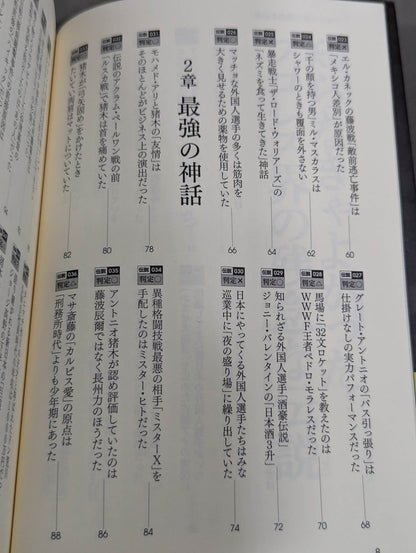 伝説 023
判定×
エル・カネックの藤波戦「敵前逃亡事件」は
「メキシコ人差別」が原因だった
60
伝説 024
「千の顔を持つ男」ミル・マスカラスは
シャワーのときも覆面を外さない
62
伝説 025
暴走戦士「ザ・ロード・ウォリアーズ」の
「ネズミを食って生きてきた」神話
64
伝説 026
判定○
マッチョな外国人選手の多くは筋肉を
大きく見せるための薬物を使用していた
66
伝説 027
判定○
グレート・アントニオの「バス引っ張り」は
仕掛けなしの実力パフォーマンスだった
68
伝説 028
判定△
馬場に「32文ロケット」を教えたのは
WWWF王者ペドロ・モラレスだった
70
伝説 029
判定○
知られざる外国人選手「酒豪伝説」
ジョニー・バレンタインの「日本酒3升」
72
伝説 030
判定×
日本にやってくる外国人選手たちはみな
巡業中に「夜の盛り場」に繰り出していた
74
2章 最強の神話
伝説 031
判定○
モハメド・アリと猪木の「友情」は
そのほとんどがビジネス上の演出だった
78
伝説 032
判定○
伝説のアクラム・ペールワン戦の前
「ルスカ戦」で猪木は首を痛めていた
80
猪木が「弓矢固め」をかけたとき
たいてい両肩はマットについていた
82
伝説 034
判定○
異種格闘技戦最悪の相手「ミスターX」を
手配したのはミスター・ヒトだった
84
伝説 035
判定○
アントニオ猪木が認め評価していたのは
藤波辰爾ではなく長州力のほうだった
86
伝説 036
判定△
マサ斎藤の「カルピス愛」の原点は
「刑務所時代」よりも少年期にあった
88